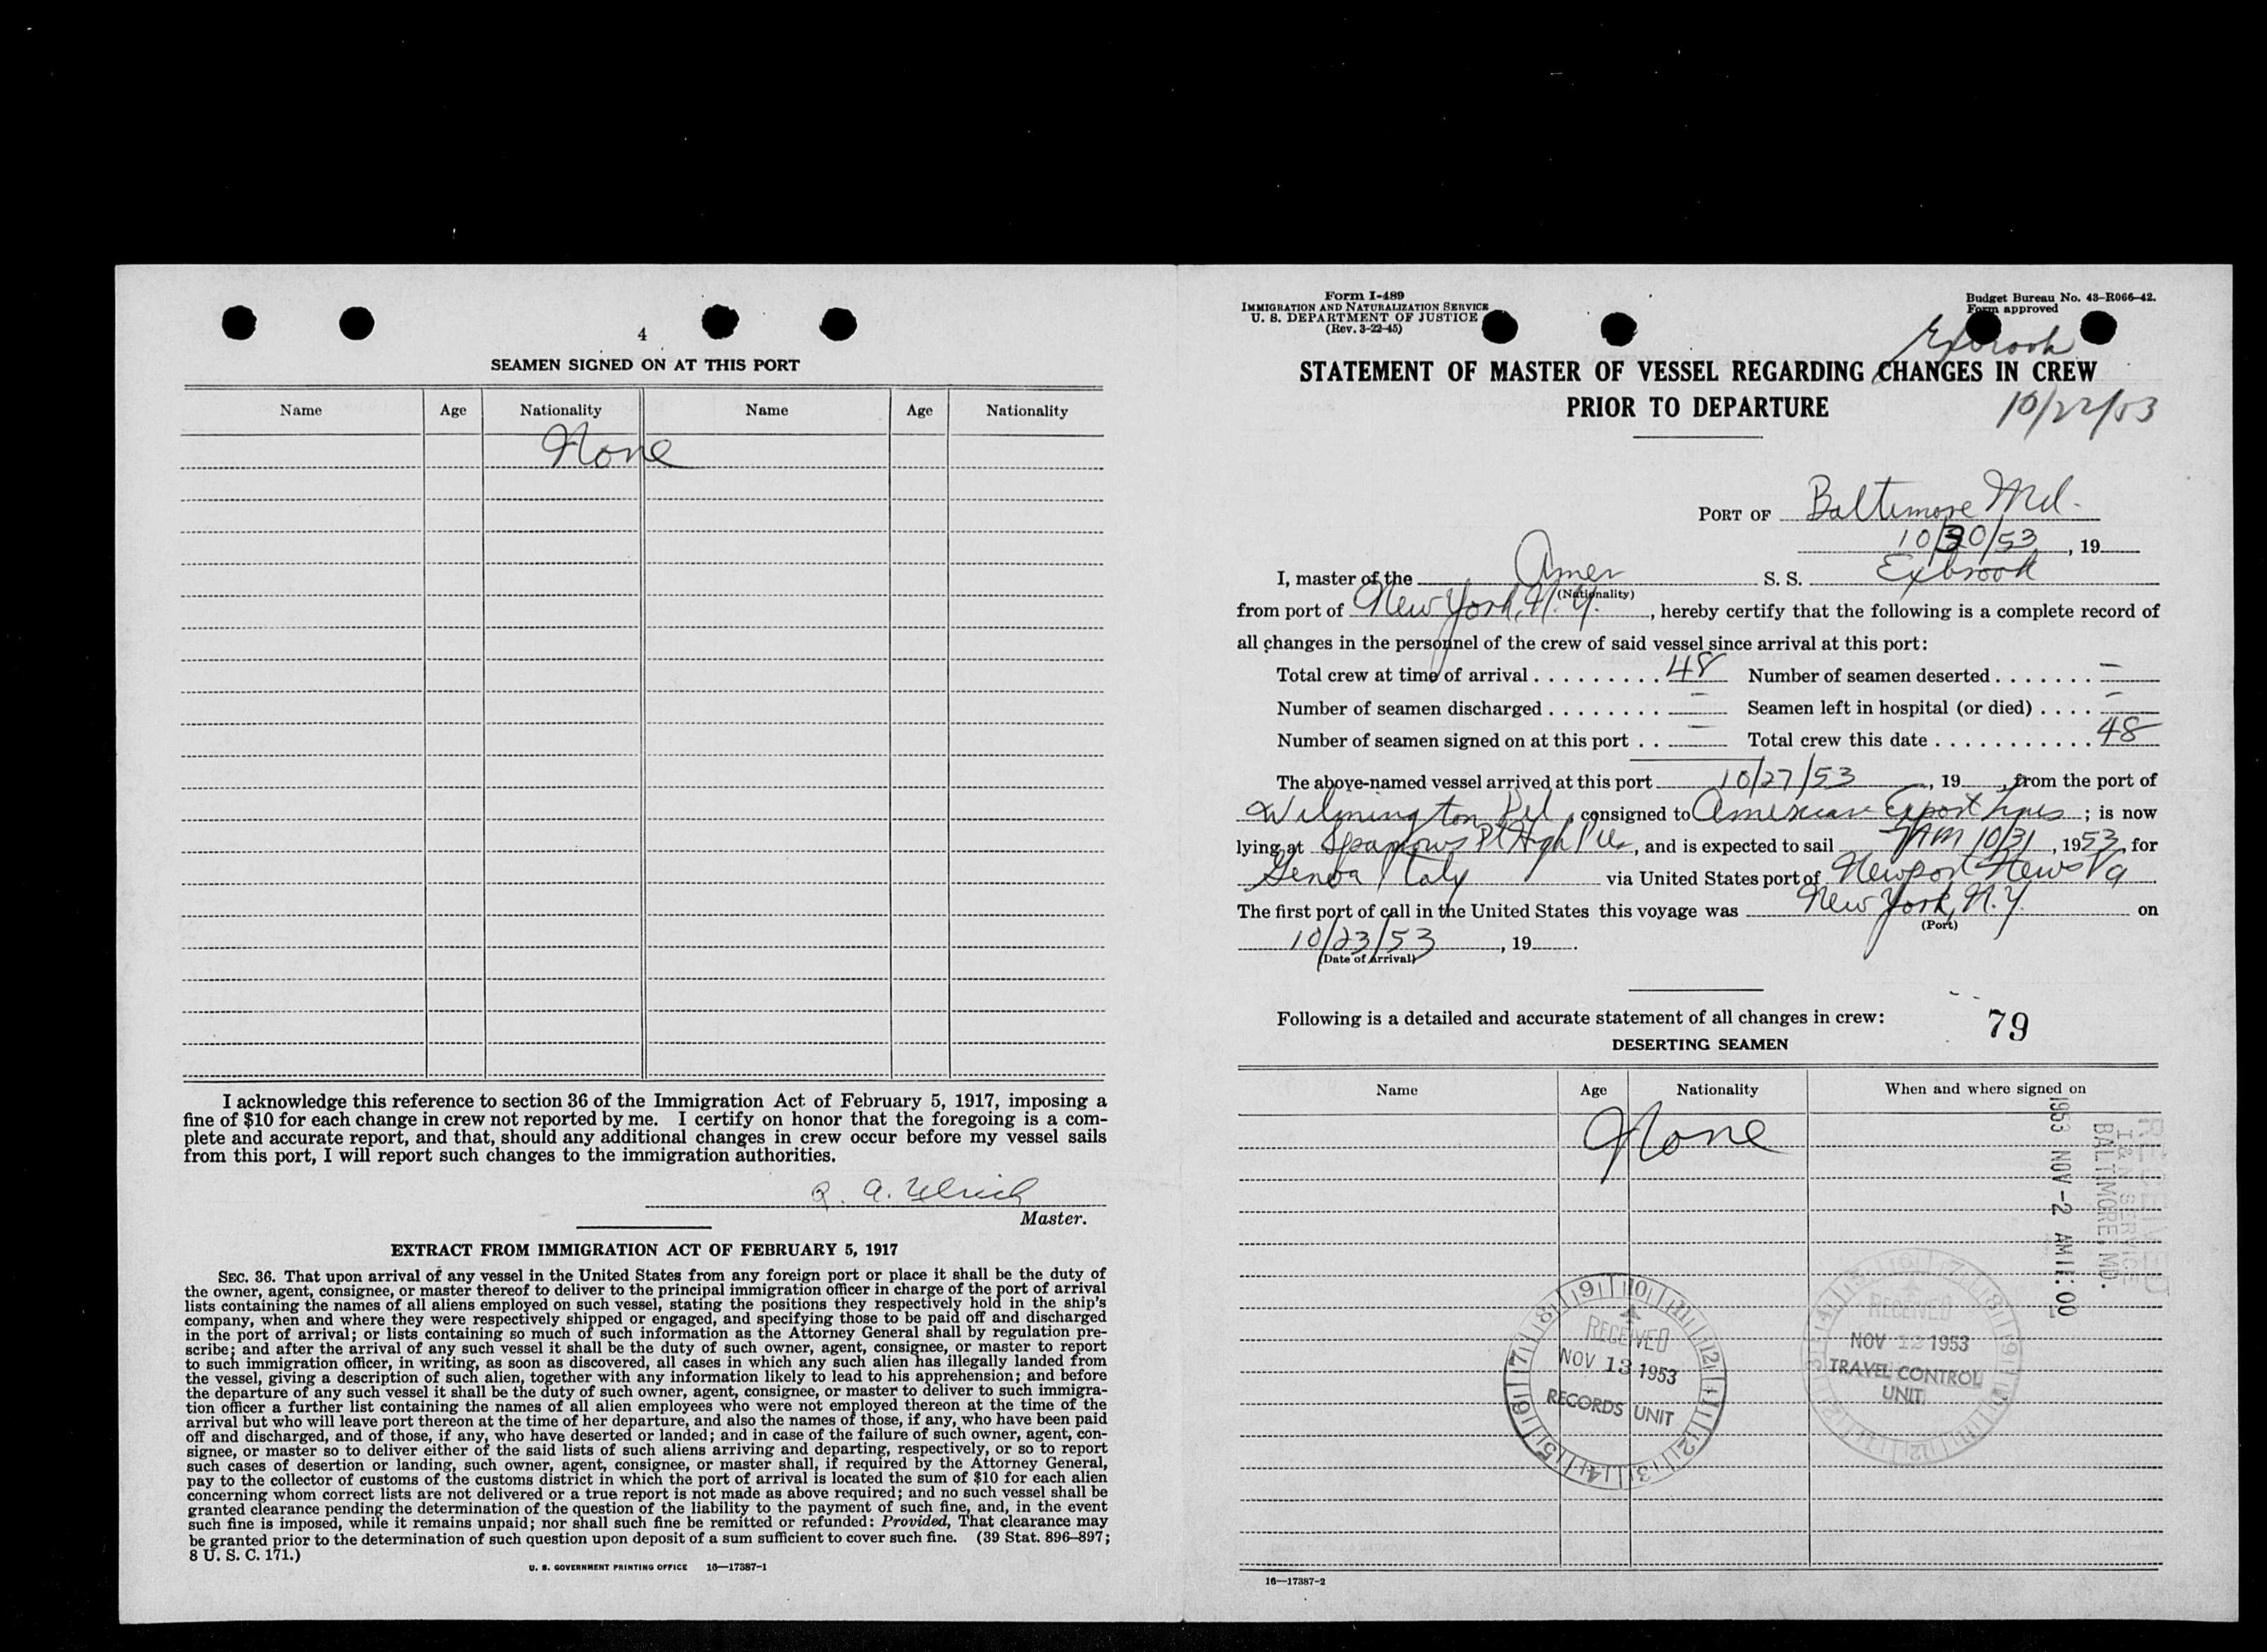 4
SEAMEN SIGNED ON AT THIS PORT
Name Age Nationality Name Age Nationality
None
I acknowledge this reference to section 36 of the Immigration Act of February 5, 1917, imposing a
fine of $10 for each change in crew not reported by me. I certify on honor that the foregoing is a com-
plete and accurate report, and that, should any additional changes in crew occur before my vessel sails
from this port, I will report such changes to the immigration authorities.
A. Ulrich
Master.
EXTRACT FROM IMMIGRATION ACT OF FEBRUARY 5, 1917
SEC. 36. That upon arrival of any vessel in the United States from any foreign port or place it shall be the duty of
the owner, agent, consignee, or master thereof to deliver to the principal immigration officer in charge of the port of arrival
lists containing the names of all aliens employed on such vessel, stating the positions they respectively hold in the ship's
company, when and where they were respectively shipped or engaged, and specifying those to be paid off and discharged
in the port of arrival; or lists containing so much of such information as the Attorney General shall by regulation pre-
scribe; and after the arrival of any such vessel it shall be the duty of such owner, agent, consignee, or master to report
to such immigration officer, in writing, as soon as discovered, all cases in which any such alien has illegally landed from
the vessel, giving a description of such alien, together with any information likely to lead to his apprehension; and before
the departure of any such vessel it shall be the duty of such owner, agent, consignee, or master to deliver to such immigra-
tion officer a further list containing the names of all alien employees who were not employed thereon at the time of the
arrival but who will leave port thereon at the time of her departure, and also the names of those, if any, who have been paid
off and discharged, and of those, if any, who have deserted or landed; and in case of the failure of such owner, agent, con-
signee, or master so to deliver either of the said lists of such aliens arriving and departing, respectively, or so to report
such cases of desertion or landing, such owner, agent, consignee, or master shall, if required by the Attorney General,
pay to the collector of customs of the customs district in which the port of arrival is located the sum of $10 for each alien
concerning whom correct lists are not delivered or a true report is not made as above required; and no such vessel shall be
granted clearance pending the determination of the question of the liability to the payment of such fine, and, in the event
such fine is imposed, while it remains unpaid; nor shall such fine be remitted or refunded: Provided, That clearance may
be granted prior to the determination of such question upon deposit of a sum sufficient to cover such fine. (39 Stat. 896–897;
8 U. S. C. 171.)
U. S. GOVERNMENT PRINTING OFFICE 16—17387-1
Form I-489
IMMIGRATION AND NATURALIZATION SERVICE
U. S. DEPARTMENT OF JUSTICE
(Rev. 3-22-45)
Budget Bureau No. 43-R066-42.
Form approved
Exbrook
STATEMENT OF MASTER OF VESSEL REGARDING CHANGES IN CREW
PRIOR TO DEPARTURE
10/22/53
PORT OF Baltimore Md.
10/30/53, 19
I, master of the Amer S. S. Exbrook
(Nationality)
from port of New York, N. Y., hereby certify that the following is a complete record of
all changes in the personnel of the crew of said vessel since arrival at this port:
Total crew at time of arrival . . . . . . . . . 48 Number of seamen deserted . . . . . . . —
Number of seamen discharged . . . . . . . . — Seamen left in hospital (or died) . . . . —
Number of seamen signed on at this port . . — Total crew this date . . . . . . . . . . . 48
The above-named vessel arrived at this port 10/27/53, 19, from the port of
Wilmington Del, consigned to American Export Lines; is now
lying at Sparrows Pt High Pier, and is expected to sail 7AM 10/31, 1953, for
Genoa Italy via United States port of Newport News Va
The first port of call in the United States this voyage was New York, N.Y. on
(Port)
10/23/53, 19.
(Date of arrival)
Following is a detailed and accurate statement of all changes in crew:
79
DESERTING SEAMEN
Name Age Nationality When and where signed on
None
RECEIVED
I & N SERVICE
BALTIMORE, MD.
1953 NOV -2 AM 11:00
RECEIVED
NOV 13 1953
RECORDS UNIT
RECEIVED
NOV 12 1953
TRAVEL CONTROL
UNIT
16—17387-2